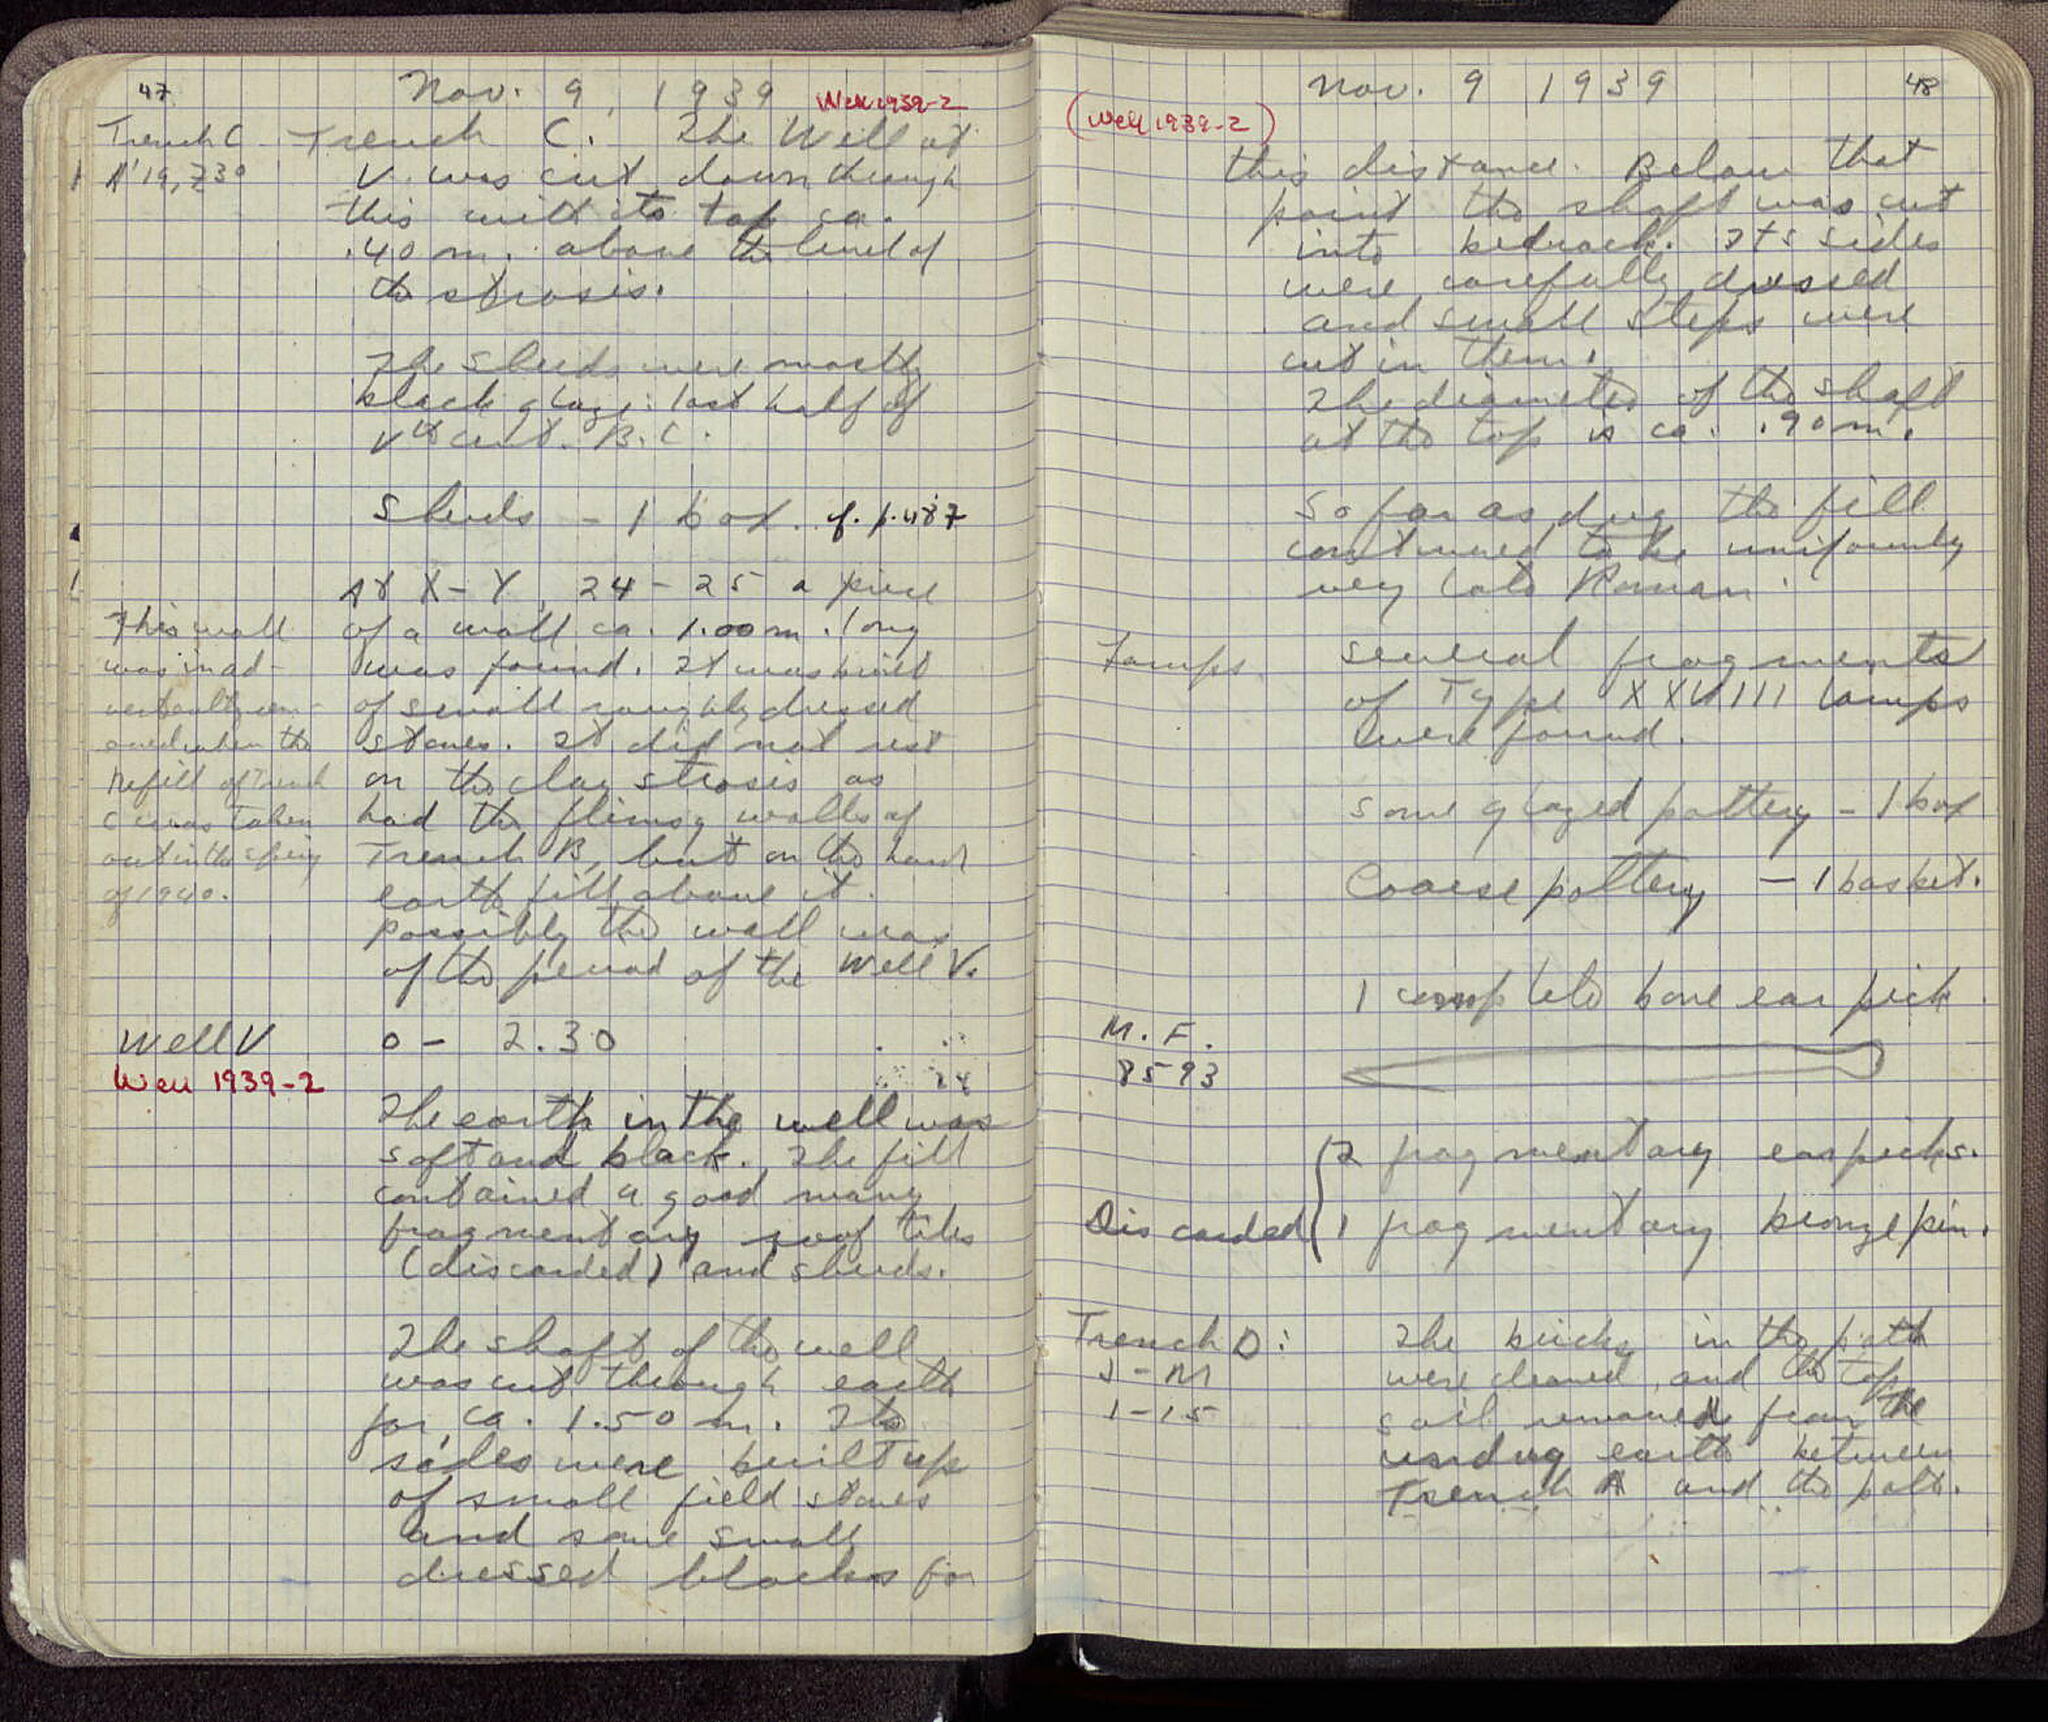 47
Nov. 9, 1939 Well 1939-2
Trench C
A'19, Z30
Trench C. The Well at
V was cut down through
this with its top ca.
.40 m. above the level of
the strosis.
The sherds were mostly
black glaze: last half of
Vth cent. B.C.
Sherds - 1 box. cf. p. 487
At X-Y, 24-25 a piece
of a wall ca. 1.00 m. long
was found. It was built
of small roughly dressed
stones. It did not rest
on the clay strosis as
had the flimsy walls of
Trench B, but on the hard
earth fill above it.
Possibly the wall was
of the period of the Well V.
This wall
was inad-
vertently rem-
oved when the
Refill of Trench
C was taken
out in the spring
of 1940.
Well V
Well 1939-2
0 - 2.30
The earth in the well was
soft and black. The fill
contained a good many
fragmentary roof tiles
(discarded) and sherds.
The shaft of the well
was cut through earth
for ca. 1.50 m. Its
sides were built up
of small field stones
and some small
dressed blocks for
Nov. 9 1939
48
(Well 1939-2)
this distance. Below that
point the shaft was cut
into bedrock. Its sides
were carefully dressed
and small steps were
cut in them.
The diameter of the shaft
at the top is ca. .90 m.
So far as dug the fill
continued to be uniformly
very late Roman.
Lamps.
Several fragments
of Type XXVIII lamps
were found.
Some glazed pottery - 1 box
Coarse pottery - 1 basket.
1 complete bone ear pick
M. F.
8593
Discarded
2 fragmentary earpicks.
1 fragmentary bronze pin.
Trench D:
J-M
1-15
The bricks in the path
were cleaned, and the top
soil removed from the
undug earth between
Trench A and the path.